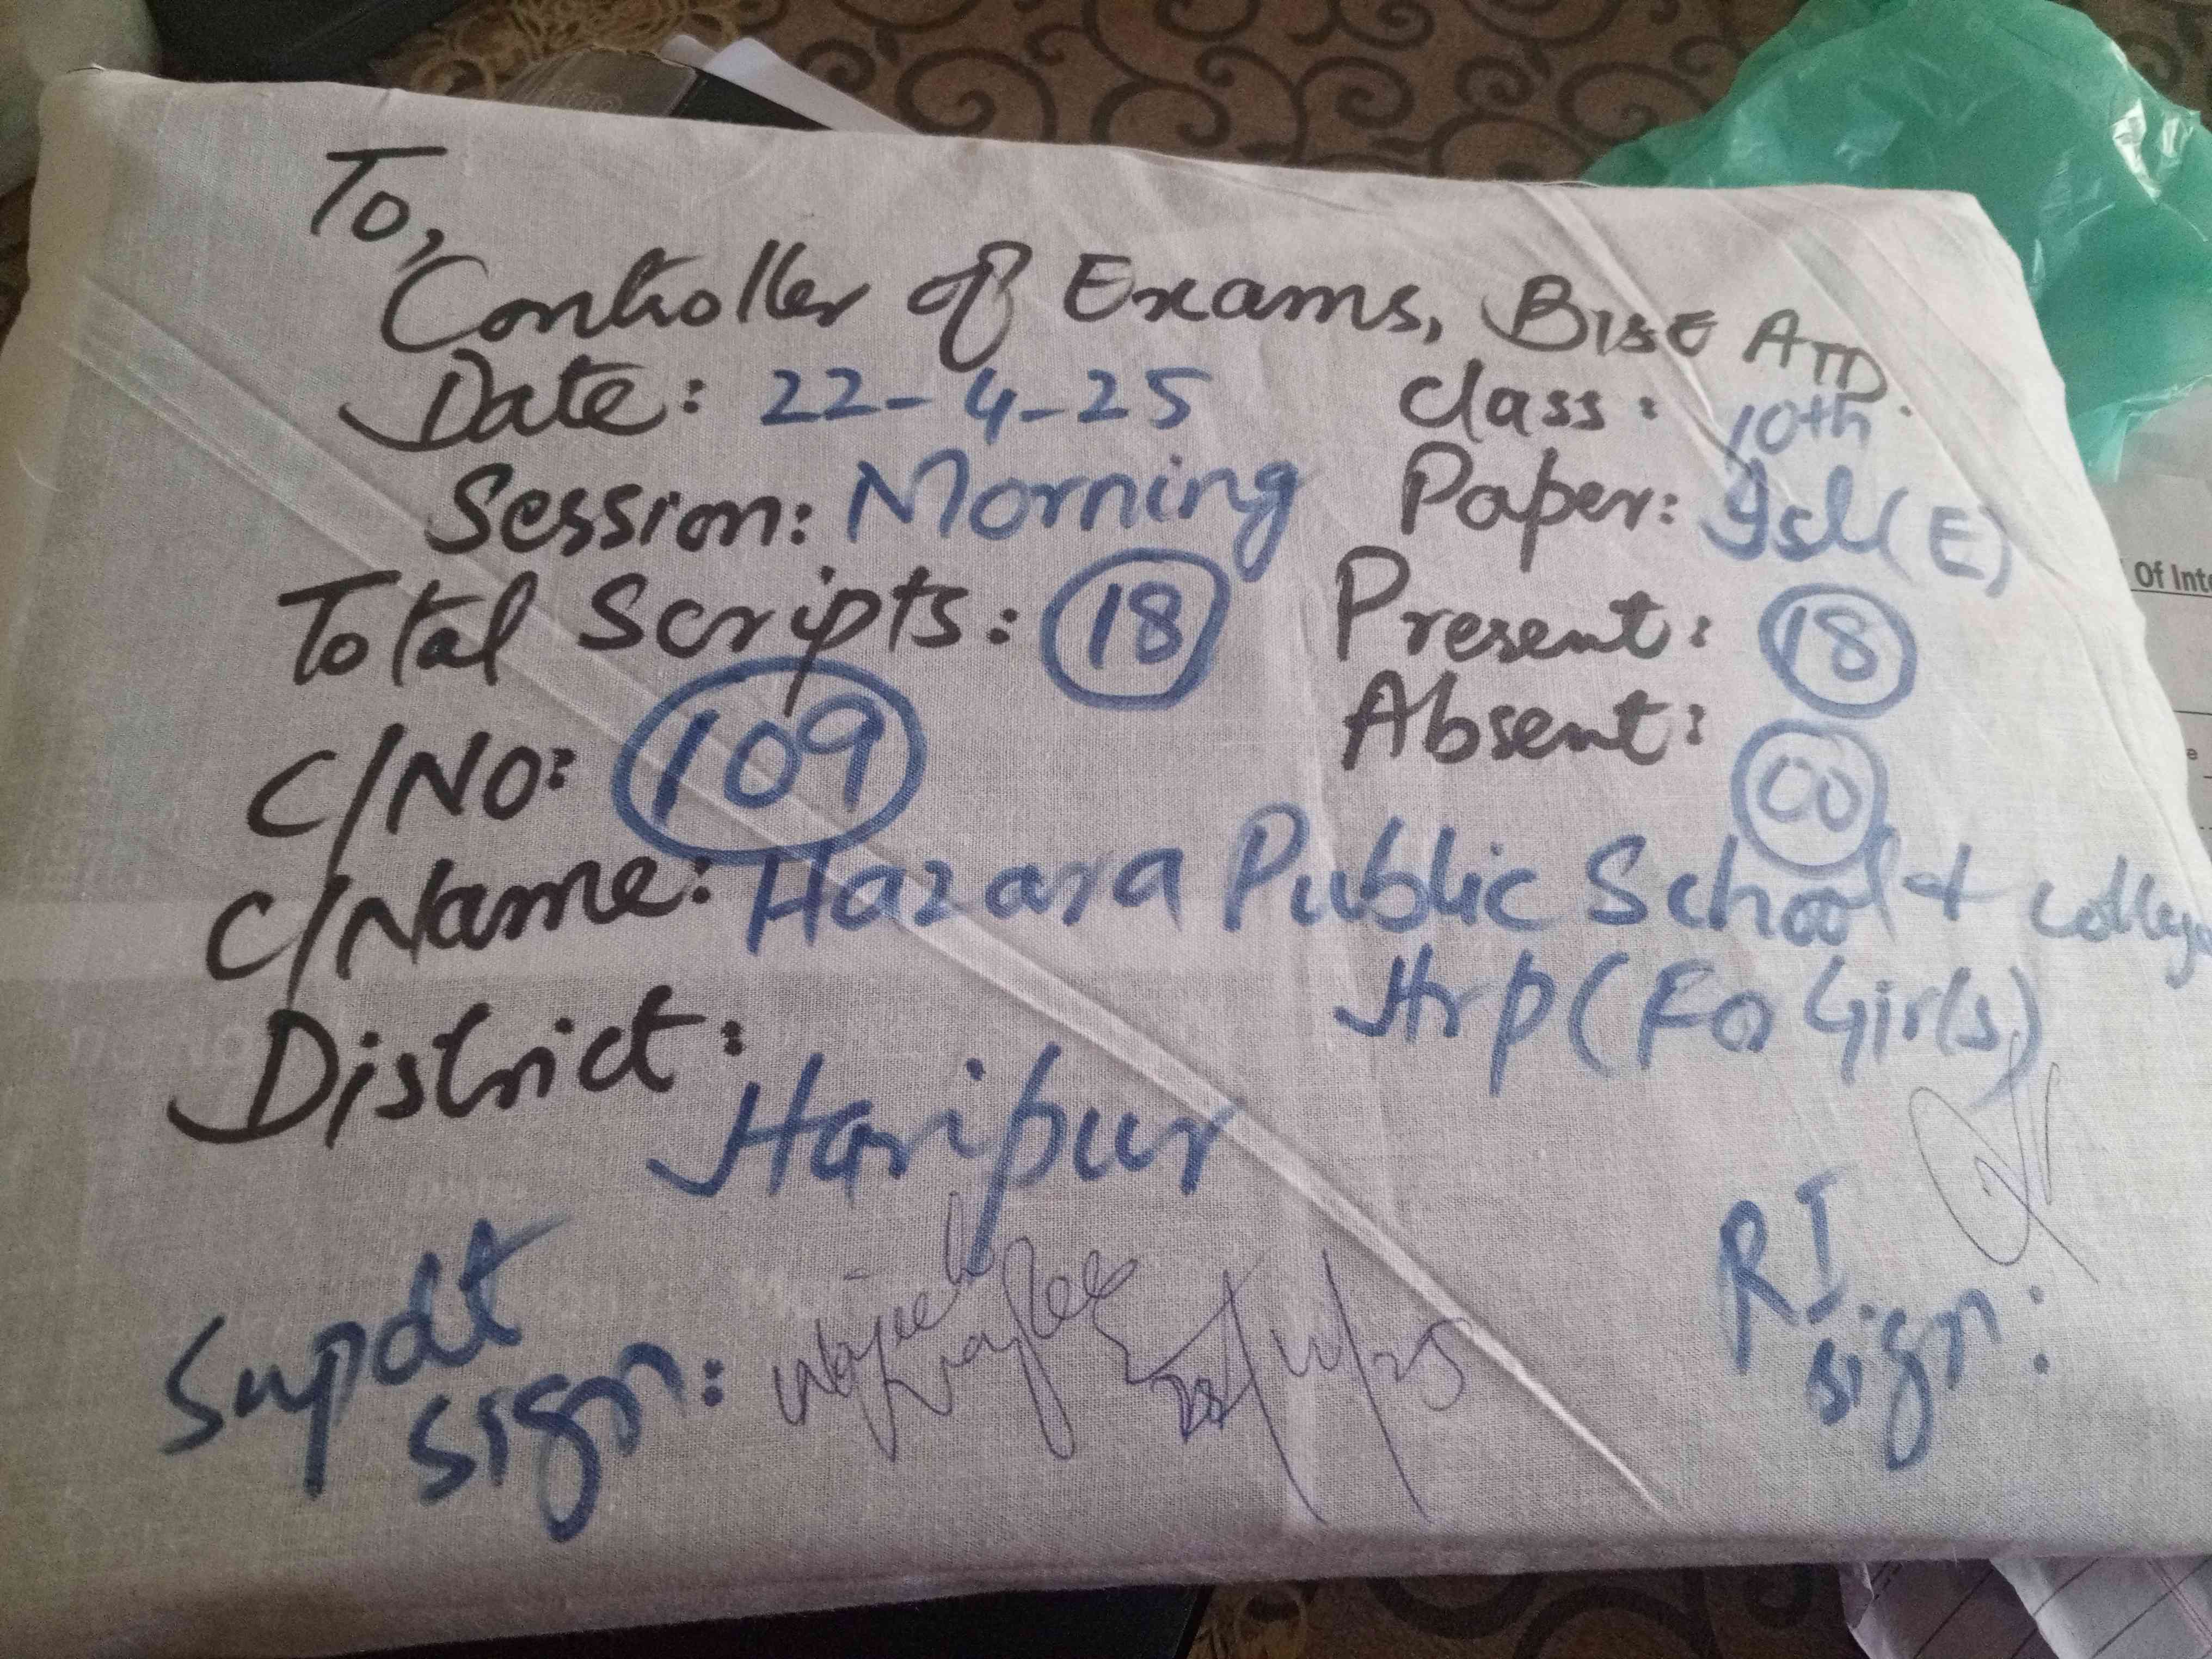 To,
Controller of Exams, BISE ATD.
Date: 22-4-25
Class: 10th
Session: Morning
Paper: Isl(E)
Total Scripts: 18
Present: 18
C/No: 109
Absent: 00
C/Name: Hazara Public School & College
Hrp (Fo Girls)
District:
Haripur
Supdt
sign:
RI
sign:
Of Inte